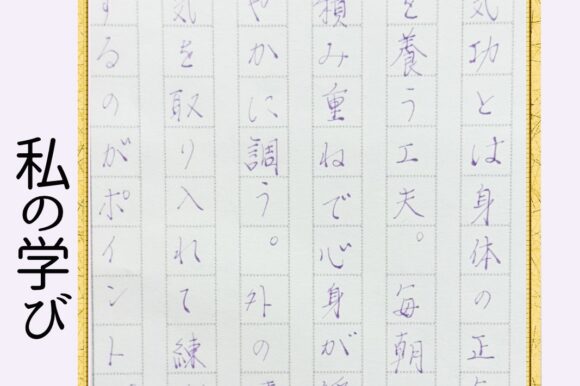 気功とは身体の正
を養う工夫。毎朝
積み重ねで心身が
やかに調う。外の
気を取り入れて練
するのがポイント
私の学び